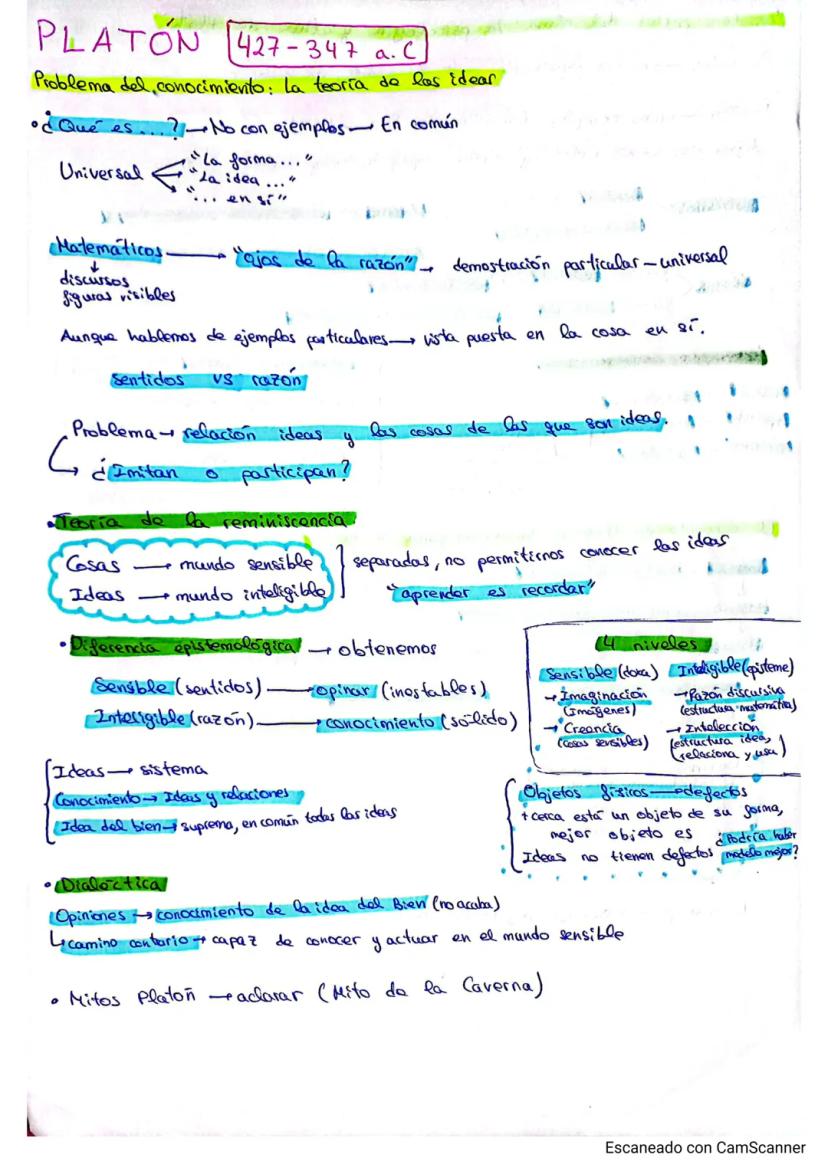 PLATÓN 427-347 a.C
Problema del conocimiento: La teoría de las ideas
• ¿Qué es...? → No con ejemplos → En común
Universal
"La forma..."
"La idea ..."
"... en sí"
Matemáticos → "ojos de la razón" → demostración particular - universal
↓
discursos
figuras visibles
Aunque hablemos de ejemplos particulares → vista puesta en la cosa en sí.
sentidos vs razón
Problema → relación ideas y las cosas de las que son ideas.
↳ ¿Imitan o participan?
• Teoría de la reminiscencia
Cosas → mundo sensible
Ideas → mundo inteligible
separadas, no permitirnos conocer las ideas
"aprender es recordar"
• Diferencia epistemológica → obtenemos
Sensible (sentidos) → opinar (inestables)
Inteligible (razón) → conocimiento (sólido)
4 niveles
Sensible (doxa)
→ Imaginación
(imágenes)
→ Creencia
(cosas sensibles)
Inteligible (episteme)
→ Razón discursiva
(estructura matemática)
→ Intelección
(estructura idea,
relaciona y usa)
Ideas → sistema
Conocimiento → Ideas y relaciones
Idea del bien → suprema, en común todas las ideas
Objetos físicos → defectos
+ cerca está un objeto de su forma,
mejor objeto es
Ideas no tienen defectos
¿Podría haber
modelo mejor?
• Dialéctica
Opiniones → conocimiento de la idea del Bien (no acaba)
↳ camino contario → capaz de conocer y actuar en el mundo sensible
• Mitos Platón → aclarar (Mito de la Caverna)
Escaneado con CamScanner